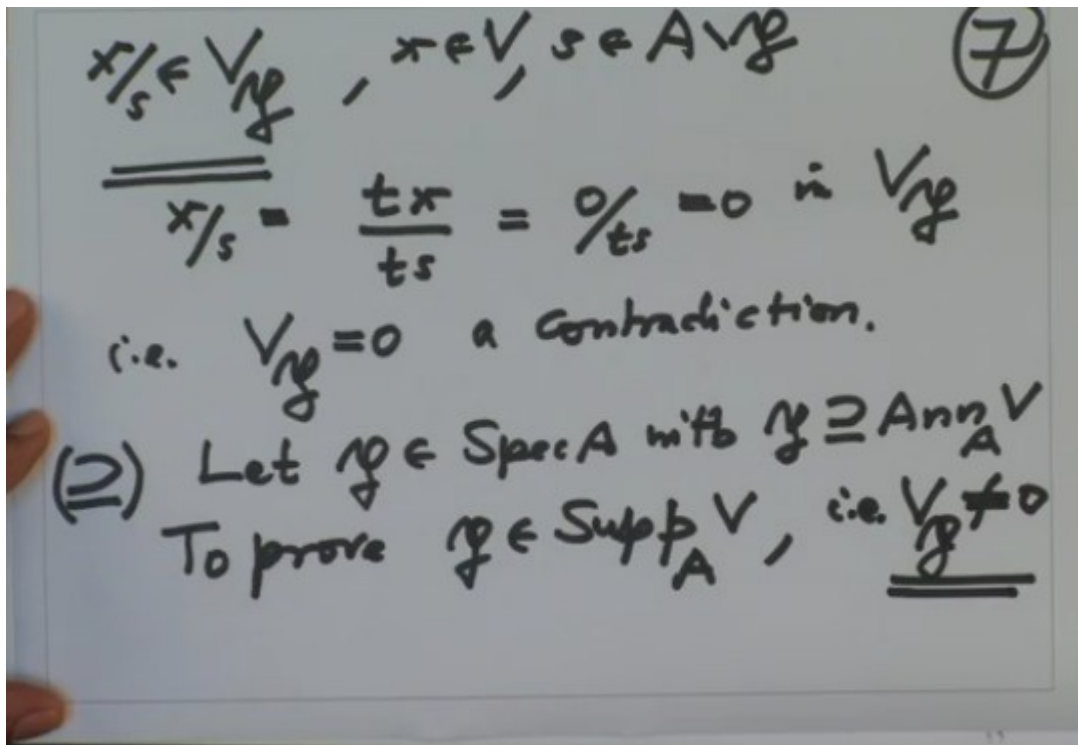 x/s ∈ V_𝔭 , x ∈ V, s ∈ A∖𝔭 ⑦
x/s = tx/ts = 0/ts = 0 in V_𝔭
i.e. V_𝔭 = 0 a contradiction.
(⊇) Let 𝔭 ∈ Spec A with 𝔭 ⊇ Ann_A V
To prove 𝔭 ∈ Supp_A V, i.e. V_𝔭 ≠ 0